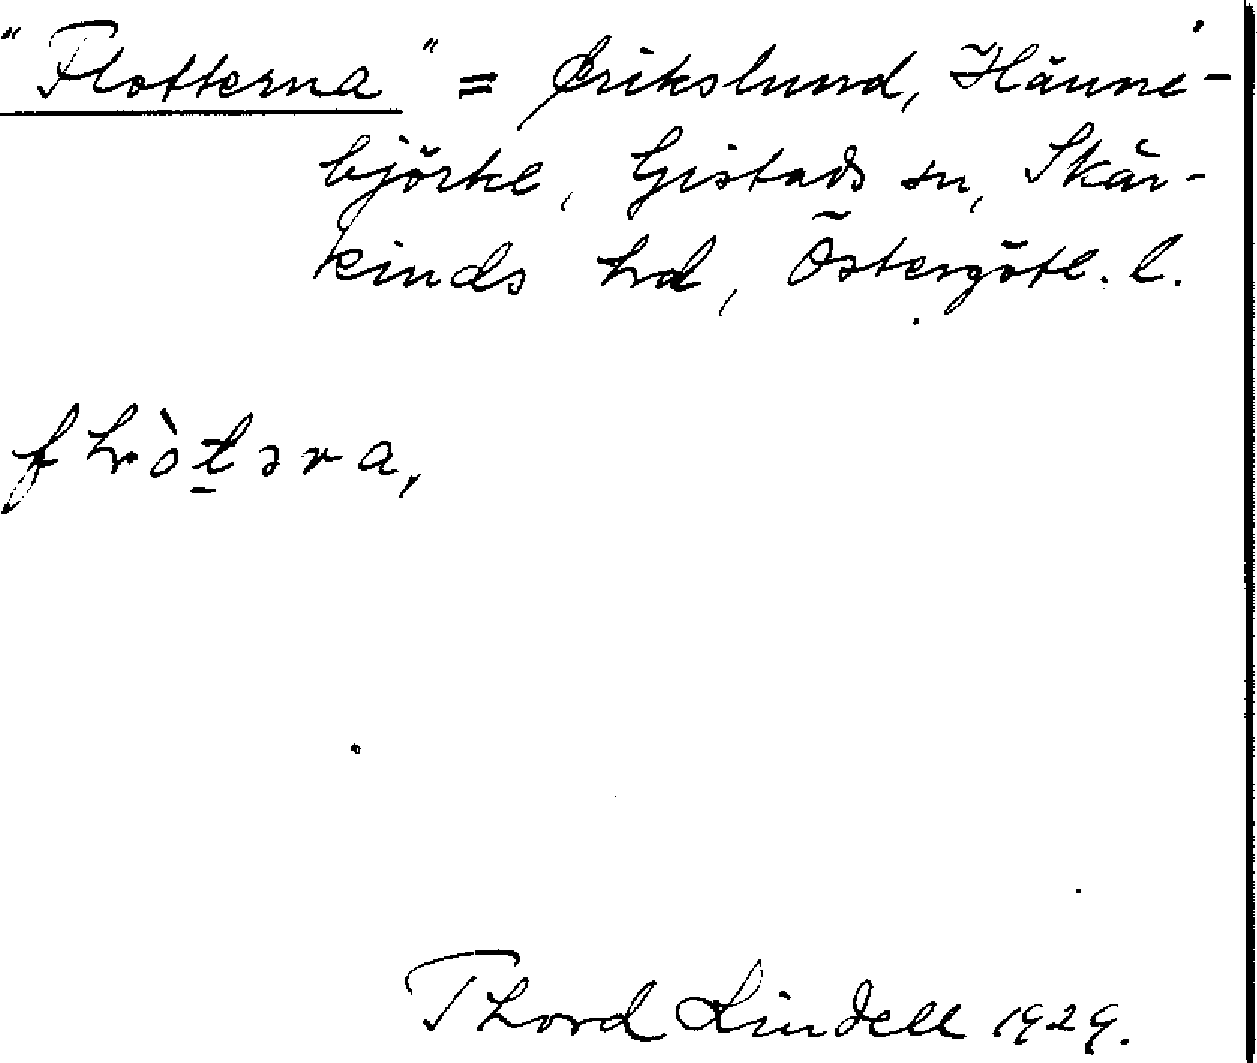 "Plotterna" = Erikslund, Hänne-
björke, Gistads sn, Skär-
kinds hd, Östergötl. l.
Thord Lindell 1929.